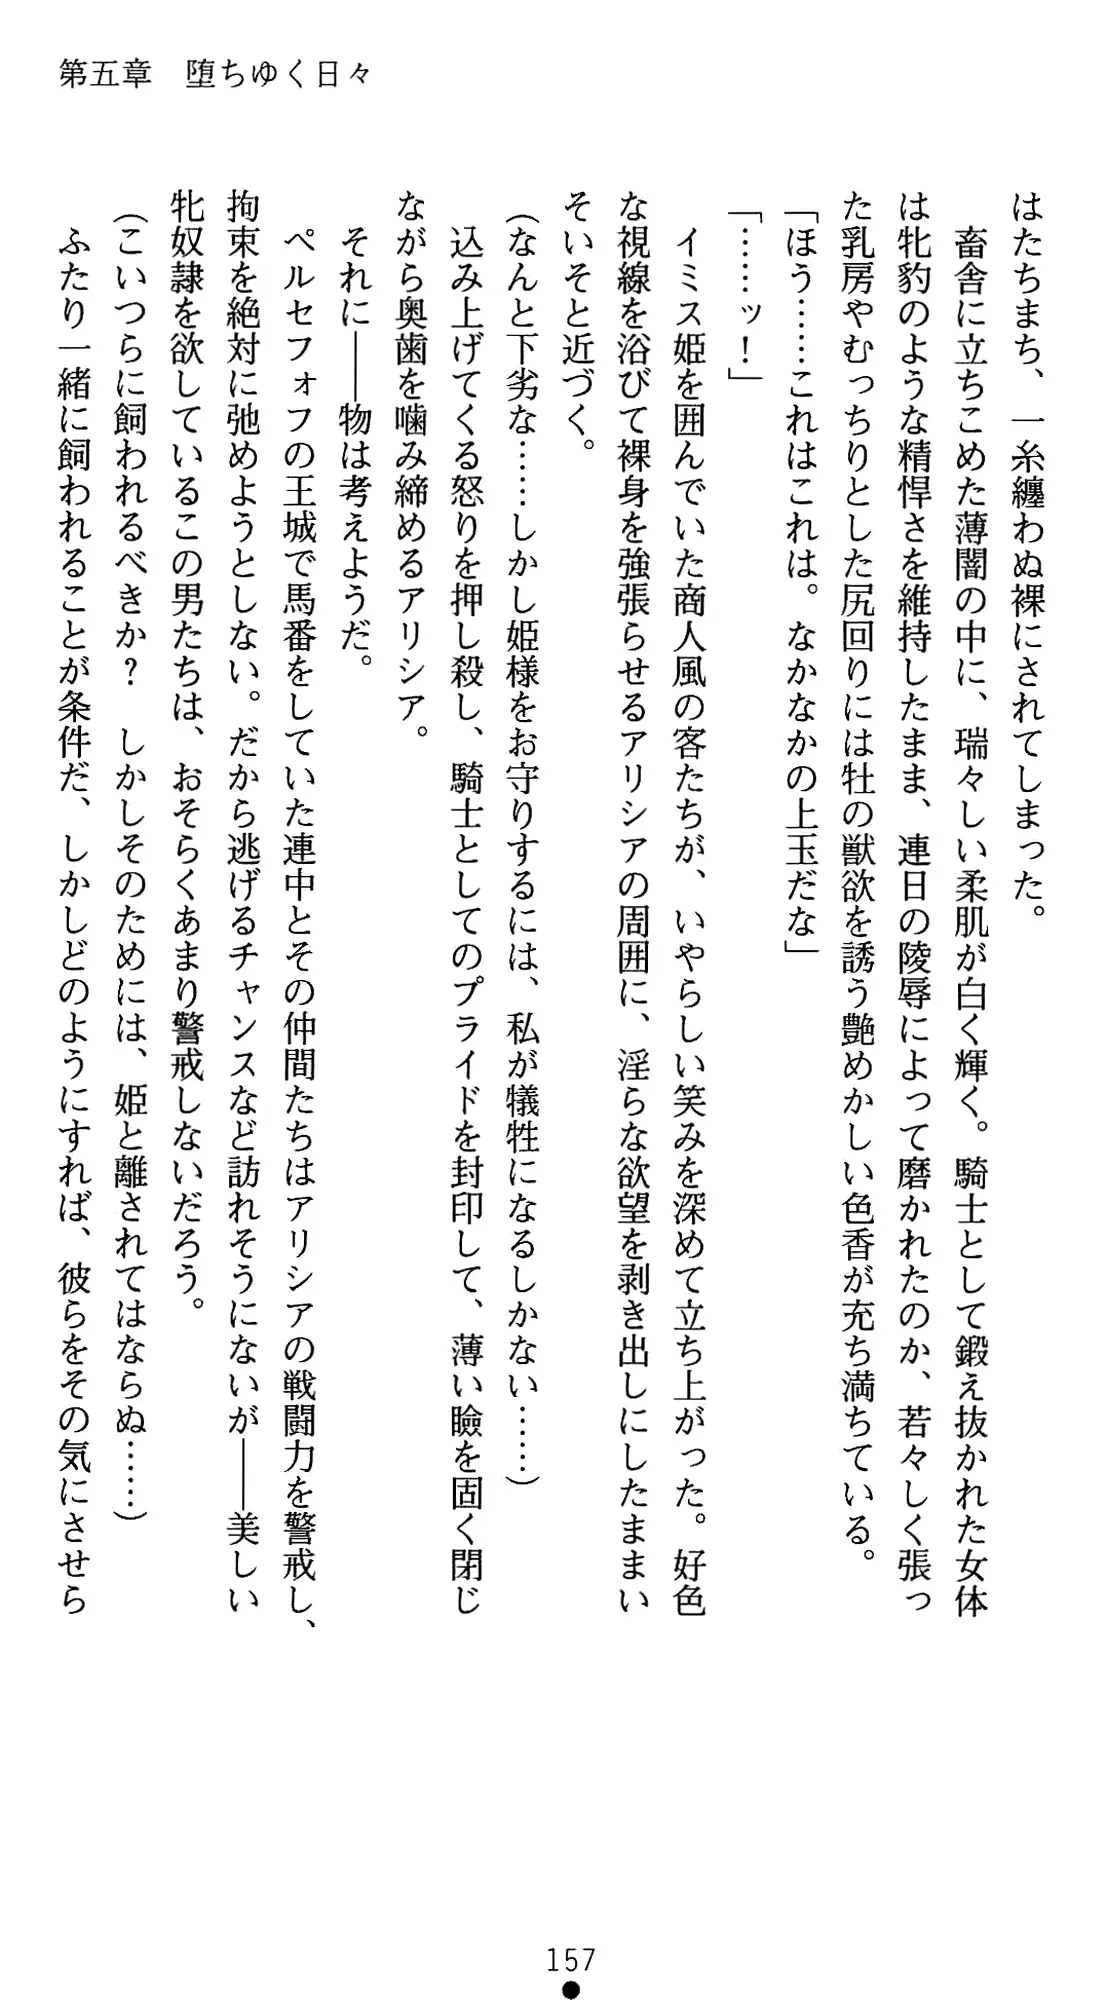 第五章　堕ちゆく日々
はたちまち、一糸纏わぬ裸にされてしまった。
　畜舎に立ちこめた薄闇の中に、瑞々しい柔肌が白く輝く。騎士として鍛え抜かれた女体
は牝豹のような精悍さを維持したまま、連日の陵辱によって磨かれたのか、若々しく張っ
た乳房やむっちりとした尻回りには牡の獣欲を誘う艶めかしい色香が充ち満ちている。
「ほう……これはこれは。なかなかの上玉だな」
「……ッ！」
　イミス姫を囲んでいた商人風の客たちが、いやらしい笑みを深めて立ち上がった。好色
な視線を浴びて裸身を強張らせるアリシアの周囲に、淫らな欲望を剥き出しにしたままい
そいそと近づく。
（なんと下劣な……しかし姫様をお守りするには、私が犠牲になるしかない……）
　込み上げてくる怒りを押し殺し、騎士としてのプライドを封印して、薄い瞼を固く閉じ
ながら奥歯を噛み締めるアリシア。
　それに――物は考えようだ。
　ペルセフォフの王城で馬番をしていた連中とその仲間たちはアリシアの戦闘力を警戒し、
拘束を絶対に弛めようとしない。だから逃げるチャンスなど訪れそうにないが――美しい
牝奴隷を欲しているこの男たちは、おそらくあまり警戒しないだろう。
（こいつらに飼われるべきか？　しかしそのためには、姫と離されてはならぬ……）
　ふたり一緒に飼われることが条件だ、しかしどのようにすれば、彼らをその気にさせら
157